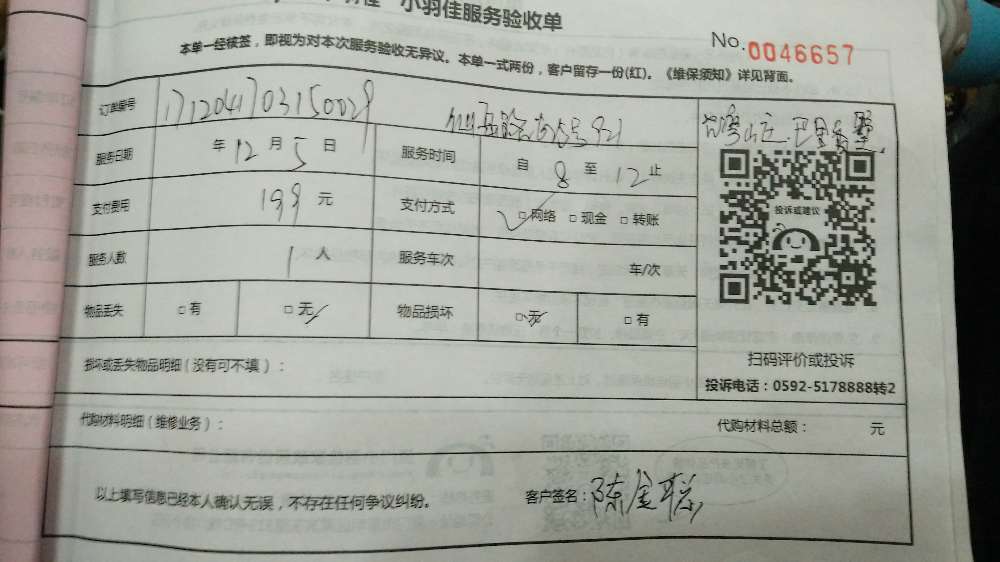 小羽佳服务验收单
No.0046657
本单一经核签，即视为对本次服务验收无异议。本单一式两份，客户留存一份(红)。《维保须知》详见背面。
订单编号 1712041703150029
服务日期 年12月5日 服务时间 自8至12止
支付费用 199元 支付方式 □网络 □现金 □转账
投诉或建议
服务人数 1人 服务车次 车/次
物品丢失 □有 □无 物品损坏 □无 □有
损坏或丢失物品明细（没有可不填）：
扫码评价或投诉
投诉电话：0592-5178888转2
代购材料明细（维修业务）： 代购材料总额： 元
以上填写信息已经本人确认无误，不存在任何争议纠纷。 客户签名：陈金联